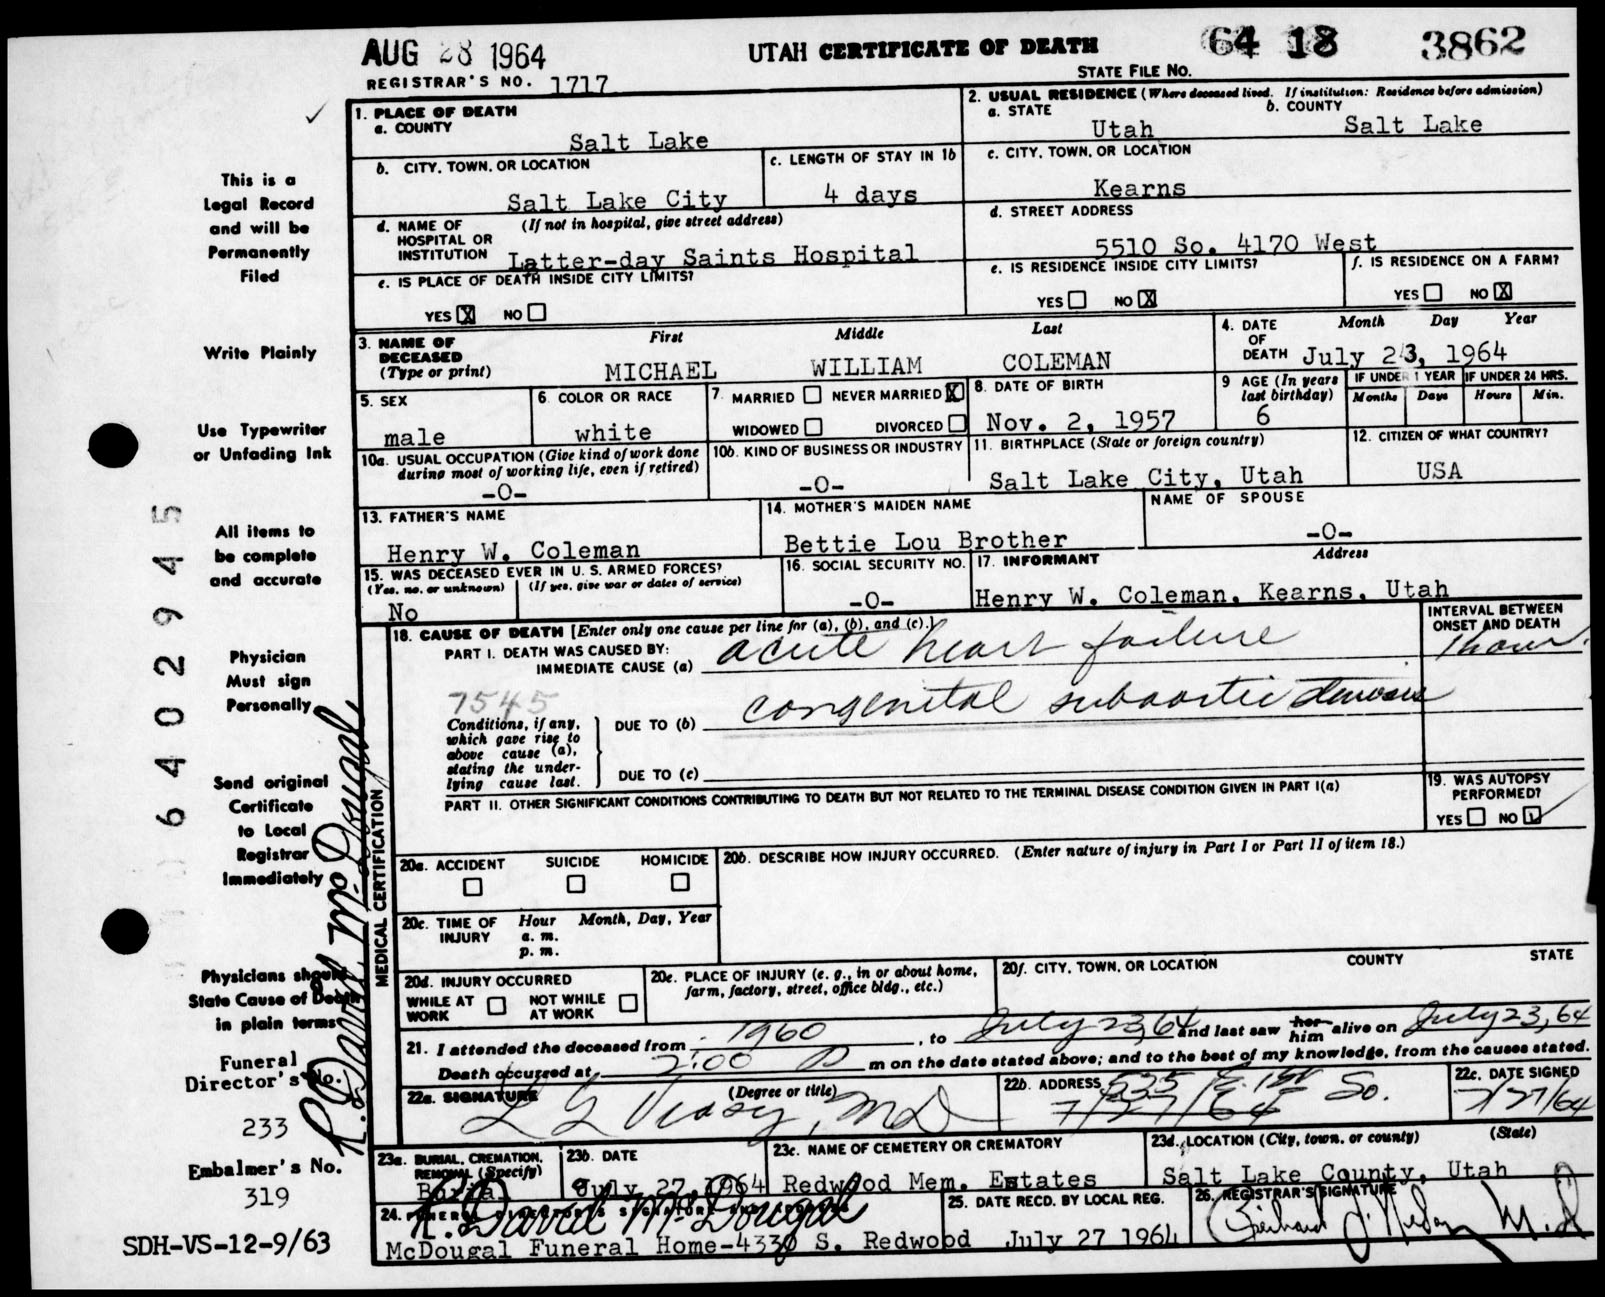 AUG 28 1964
UTAH CERTIFICATE OF DEATH
64 18 3862
STATE FILE No.
REGISTRAR'S NO. 1717
1. PLACE OF DEATH
a. COUNTY
Salt Lake
2. USUAL RESIDENCE (Where deceased lived. If institution: Residence before admission)
a. STATE
Utah
b. COUNTY
Salt Lake
b. CITY, TOWN, OR LOCATION
Salt Lake City
c. LENGTH OF STAY IN 1b
4 days
c. CITY, TOWN, OR LOCATION
Kearns
d. NAME OF HOSPITAL OR INSTITUTION
(If not in hospital, give street address)
Latter-day Saints Hospital
d. STREET ADDRESS
5510 So. 4170 West
e. IS PLACE OF DEATH INSIDE CITY LIMITS?
YES X NO
e. IS RESIDENCE INSIDE CITY LIMITS?
YES NO X
f. IS RESIDENCE ON A FARM?
YES NO X
3. NAME OF DECEASED (Type or print)
First Middle Last
MICHAEL WILLIAM COLEMAN
4. DATE OF DEATH
Month Day Year
July 23, 1964
5. SEX
male
6. COLOR OR RACE
white
7. MARRIED NEVER MARRIED X
WIDOWED DIVORCED
8. DATE OF BIRTH
Nov. 2, 1957
9 AGE (In years last birthday)
6
IF UNDER 1 YEAR
Months Days
IF UNDER 24 HRS.
Hours Min.
10a. USUAL OCCUPATION (Give kind of work done during most of working life, even if retired)
-0-
10b. KIND OF BUSINESS OR INDUSTRY
-0-
11. BIRTHPLACE (State or foreign country)
Salt Lake City, Utah
12. CITIZEN OF WHAT COUNTRY?
USA
13. FATHER'S NAME
Henry W. Coleman
14. MOTHER'S MAIDEN NAME
Bettie Lou Brother
NAME OF SPOUSE
-0-
15. WAS DECEASED EVER IN U. S. ARMED FORCES?
(Yes, no, or unknown) (If yes, give war or dates of service)
No
16. SOCIAL SECURITY NO.
-0-
17. INFORMANT Address
Henry W. Coleman, Kearns, Utah
18. CAUSE OF DEATH [Enter only one cause per line for (a), (b), and (c).]
PART I. DEATH WAS CAUSED BY:
IMMEDIATE CAUSE (a) acute heart failure
INTERVAL BETWEEN ONSET AND DEATH
1 hour
7545
Conditions, if any, which gave rise to above cause (a), stating the underlying cause last.
DUE TO (b) congenital subaortic stenosis
DUE TO (c)
PART II. OTHER SIGNIFICANT CONDITIONS CONTRIBUTING TO DEATH BUT NOT RELATED TO THE TERMINAL DISEASE CONDITION GIVEN IN PART I(a)
19. WAS AUTOPSY PERFORMED?
YES NO ✓
20a. ACCIDENT SUICIDE HOMICIDE
20b. DESCRIBE HOW INJURY OCCURRED. (Enter nature of injury in Part I or Part II of item 18.)
20c. TIME OF INJURY
Hour Month, Day, Year
a. m.
p. m.
20d. INJURY OCCURRED
WHILE AT WORK NOT WHILE AT WORK
20e. PLACE OF INJURY (e. g., in or about home, farm, factory, street, office bldg., etc.)
20f. CITY, TOWN, OR LOCATION COUNTY STATE
21. I attended the deceased from 1960, to July 23, 64 and last saw her him alive on July 23, 64
Death occurred at 2:00 P m on the date stated above; and to the best of my knowledge, from the causes stated.
22a. SIGNATURE (Degree or title)
L G Veasy, MD
22b. ADDRESS
535 E 1st So.
7/27/64
22c. DATE SIGNED
7/27/64
23a. BURIAL, CREMATION, REMOVAL (Specify)
Burial
23b. DATE
July 27, 1964
23c. NAME OF CEMETERY OR CREMATORY
Redwood Mem. Estates
23d. LOCATION (City, town, or county) (State)
Salt Lake County, Utah
24. FUNERAL DIRECTOR'S SIGNATURE AND ADDRESS
R. David McDougal
McDougal Funeral Home-4330 S. Redwood
25. DATE RECD. BY LOCAL REG.
July 27 1964
26. REGISTRAR'S SIGNATURE
M.D
This is a
Legal Record
and will be
Permanently
Filed
Write Plainly
Use Typewriter
or Unfading Ink
All items to
be complete
and accurate
Physician
Must sign
Personally
Send original
Certificate
to Local
Registrar
Immediately
Physicians should
State Cause of Death
in plain terms
Funeral
Director's No.
233
Embalmer's No.
319
SDH-VS-12-9/63
6402945
MEDICAL CERTIFICATION
R. David McDougal